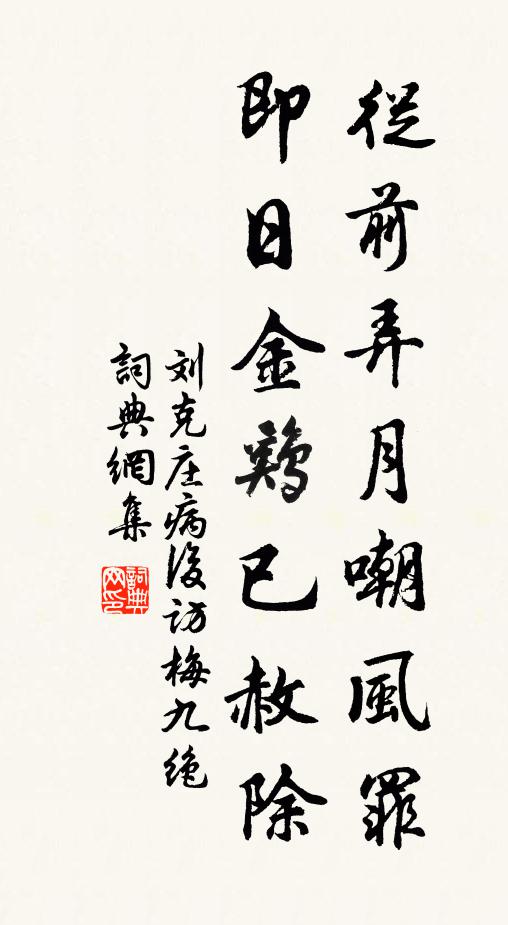 從前弄月嘲風罪
即日金鷄已赦除
刘克庄病後访梅九绝
詞典網集
詞典網印